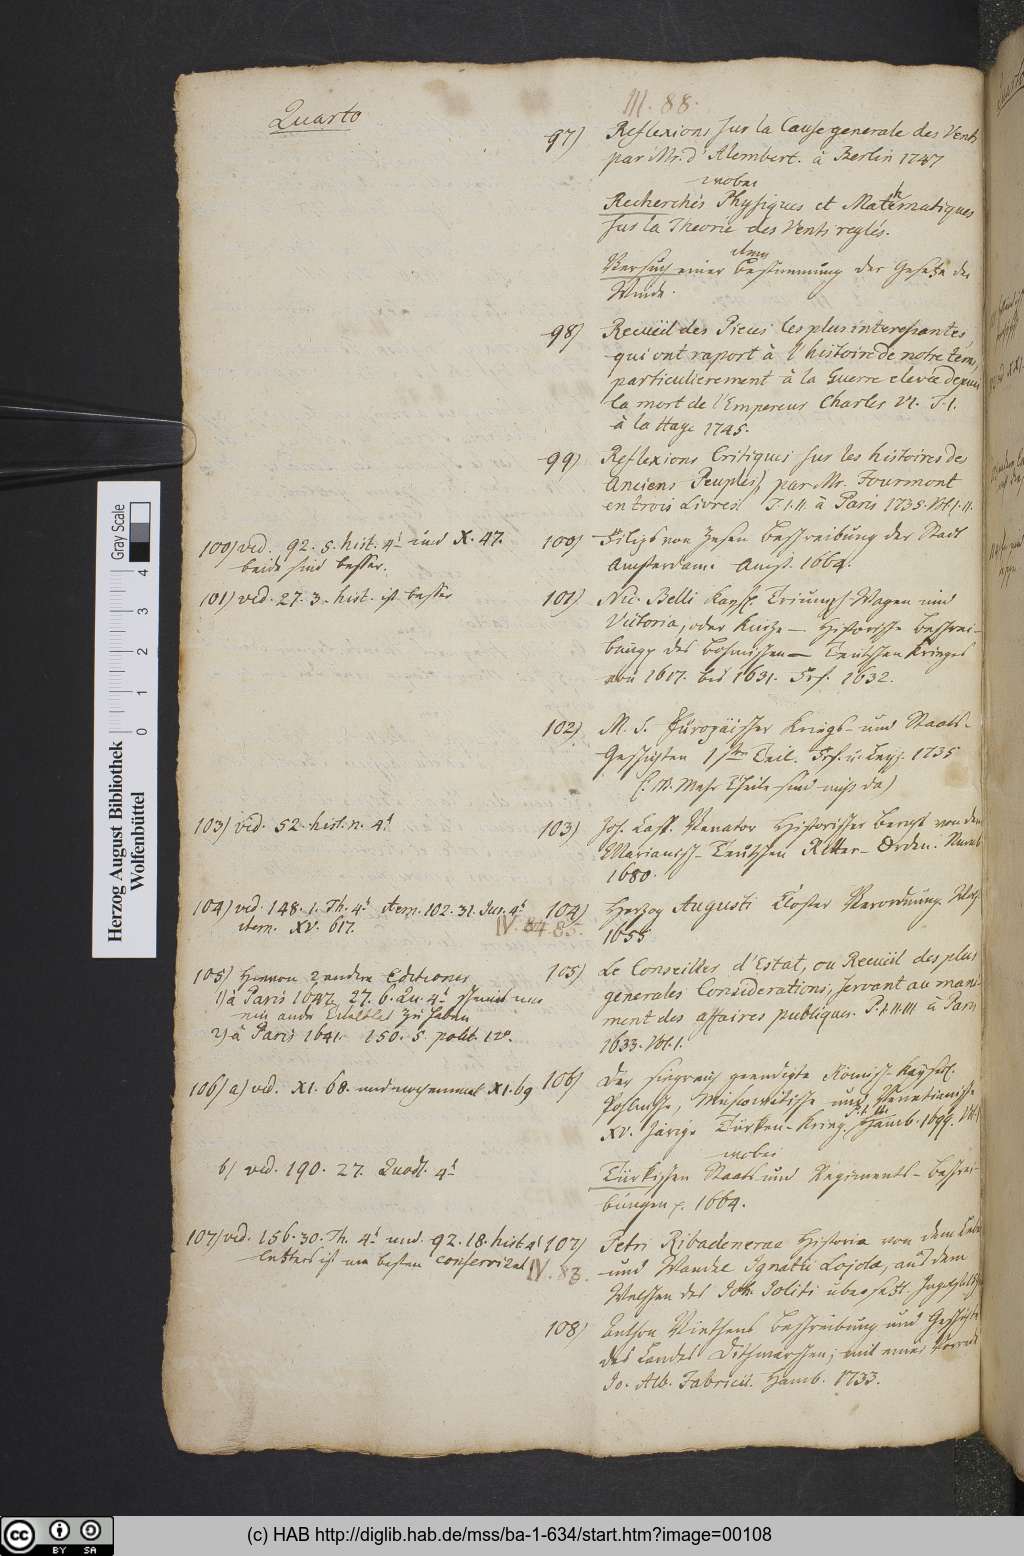 Quarto
III. 88.
97) Reflexions sur la Cause generale des Vents
par Mr. d'Alembert. à Berlin 1747
wobei
Recherchés Physiques et Mathematiques
sur la Theorie des Vents reglés.
Versuch einer Bestimmung der Gesetze der
Winde.
98) Recueïl des Pieces les plus interessantes,
qui ont raport à l'histoire de notre tems,
particulierement à la Guerre elevée depuis
la mort de l'Empereur Charles VI. T. I.
à la Haye 1745.
99) Reflexions Critiques sur les histoires des
Anciens Peuples, par Mr. Fourmont
en trois Livres. T. I. II. à Paris 1735. Vol. I. II.
100) ved. 92. 5. hist. 4t. und X. 47.
beide sind besser.
100) Filips von Zesen Beschreibung der Stadt
Amsterdam. Amst. 1664.
101) ved. 27. 3. hist. ist besser
101) Nic. Belli Kaysl. Triumpf-Wagen und
Victoria, oder Kurtze – Historische Beschrei-
bung des Bohmischen – Teutschen Krieges
von 1617. bis 1631. Frf. 1632.
102) M. S. Europäischer Kriegs- und Staats-
Geschichten 1ster Teil. Frf. u. Leipz. 1735
(: NB. Mehr Theile sind nicht da)
103) ved. 52. hist. n. 4t
103) Joh. Casp. Venator Historischer Bericht von dem
Marianisch-Teutschen Ritter-Orden. Nurnb.
1680.
104) ved. 148. 1. Th. 4t item. 102. 31. Jur. 4t
item. XV. 617.
IV. 84 85.
104) Hertzog Augusti Closter Verordnung. Wolf.
1655
105) Hiervon 2 andere Editiones
1) à Paris 1647, 27. 6. Qu. 4t
2) à Paris 1641. 150. 5. polit. 12o.
105) Le Conseiller d'Estat, ou Recueïl des plus
generales Considerations, servant au mani-
ment des affaires publiques. P. I. II. III. à Paris
1633. Vol. I.
106) a) ved. XI. 68. und noch einmal XI. 69
106) Der siegreich geendigte Römisch-Kayserl.
Pohlnische, Muscowitische und Venetianische
XV. Järige Türken-Krieg. Hamb. 1699.
b) ved. 190. 27. Quodl. 4t
wobei
Türkischen Staats- und Regiments-Beschrei-
bungen p. 1664.
107) ved. 156. 30. Th. 4t und. 92. 18. hist. 4t
letzters ist am besten conserviret
IV. 83.
107) Petri Ribadeneraa Historia von dem Leben
und Wandel Ignatii Lojola, aus dem
Welschen des Joh. Joliti übersetzt.
108) Anthon Viethens Beschreibung und Geschichte
des Landes Dithmarschen; mit einer Vorrede
Jo. Alb. Fabricii. Hamb. 1733.
Herzog August Bibliothek
Wolfenbüttel
Gray Scale
0 1 2 3 4
cc BY SA
(c) HAB http://diglib.hab.de/mss/ba-1-634/start.htm?image=00108